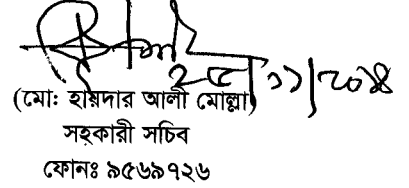 ২৫/১১/২০১৪
(মোঃ হায়দার আলী মোল্লা)
সহকারী সচিব
ফোনঃ ৯৫৬৯৭২৬